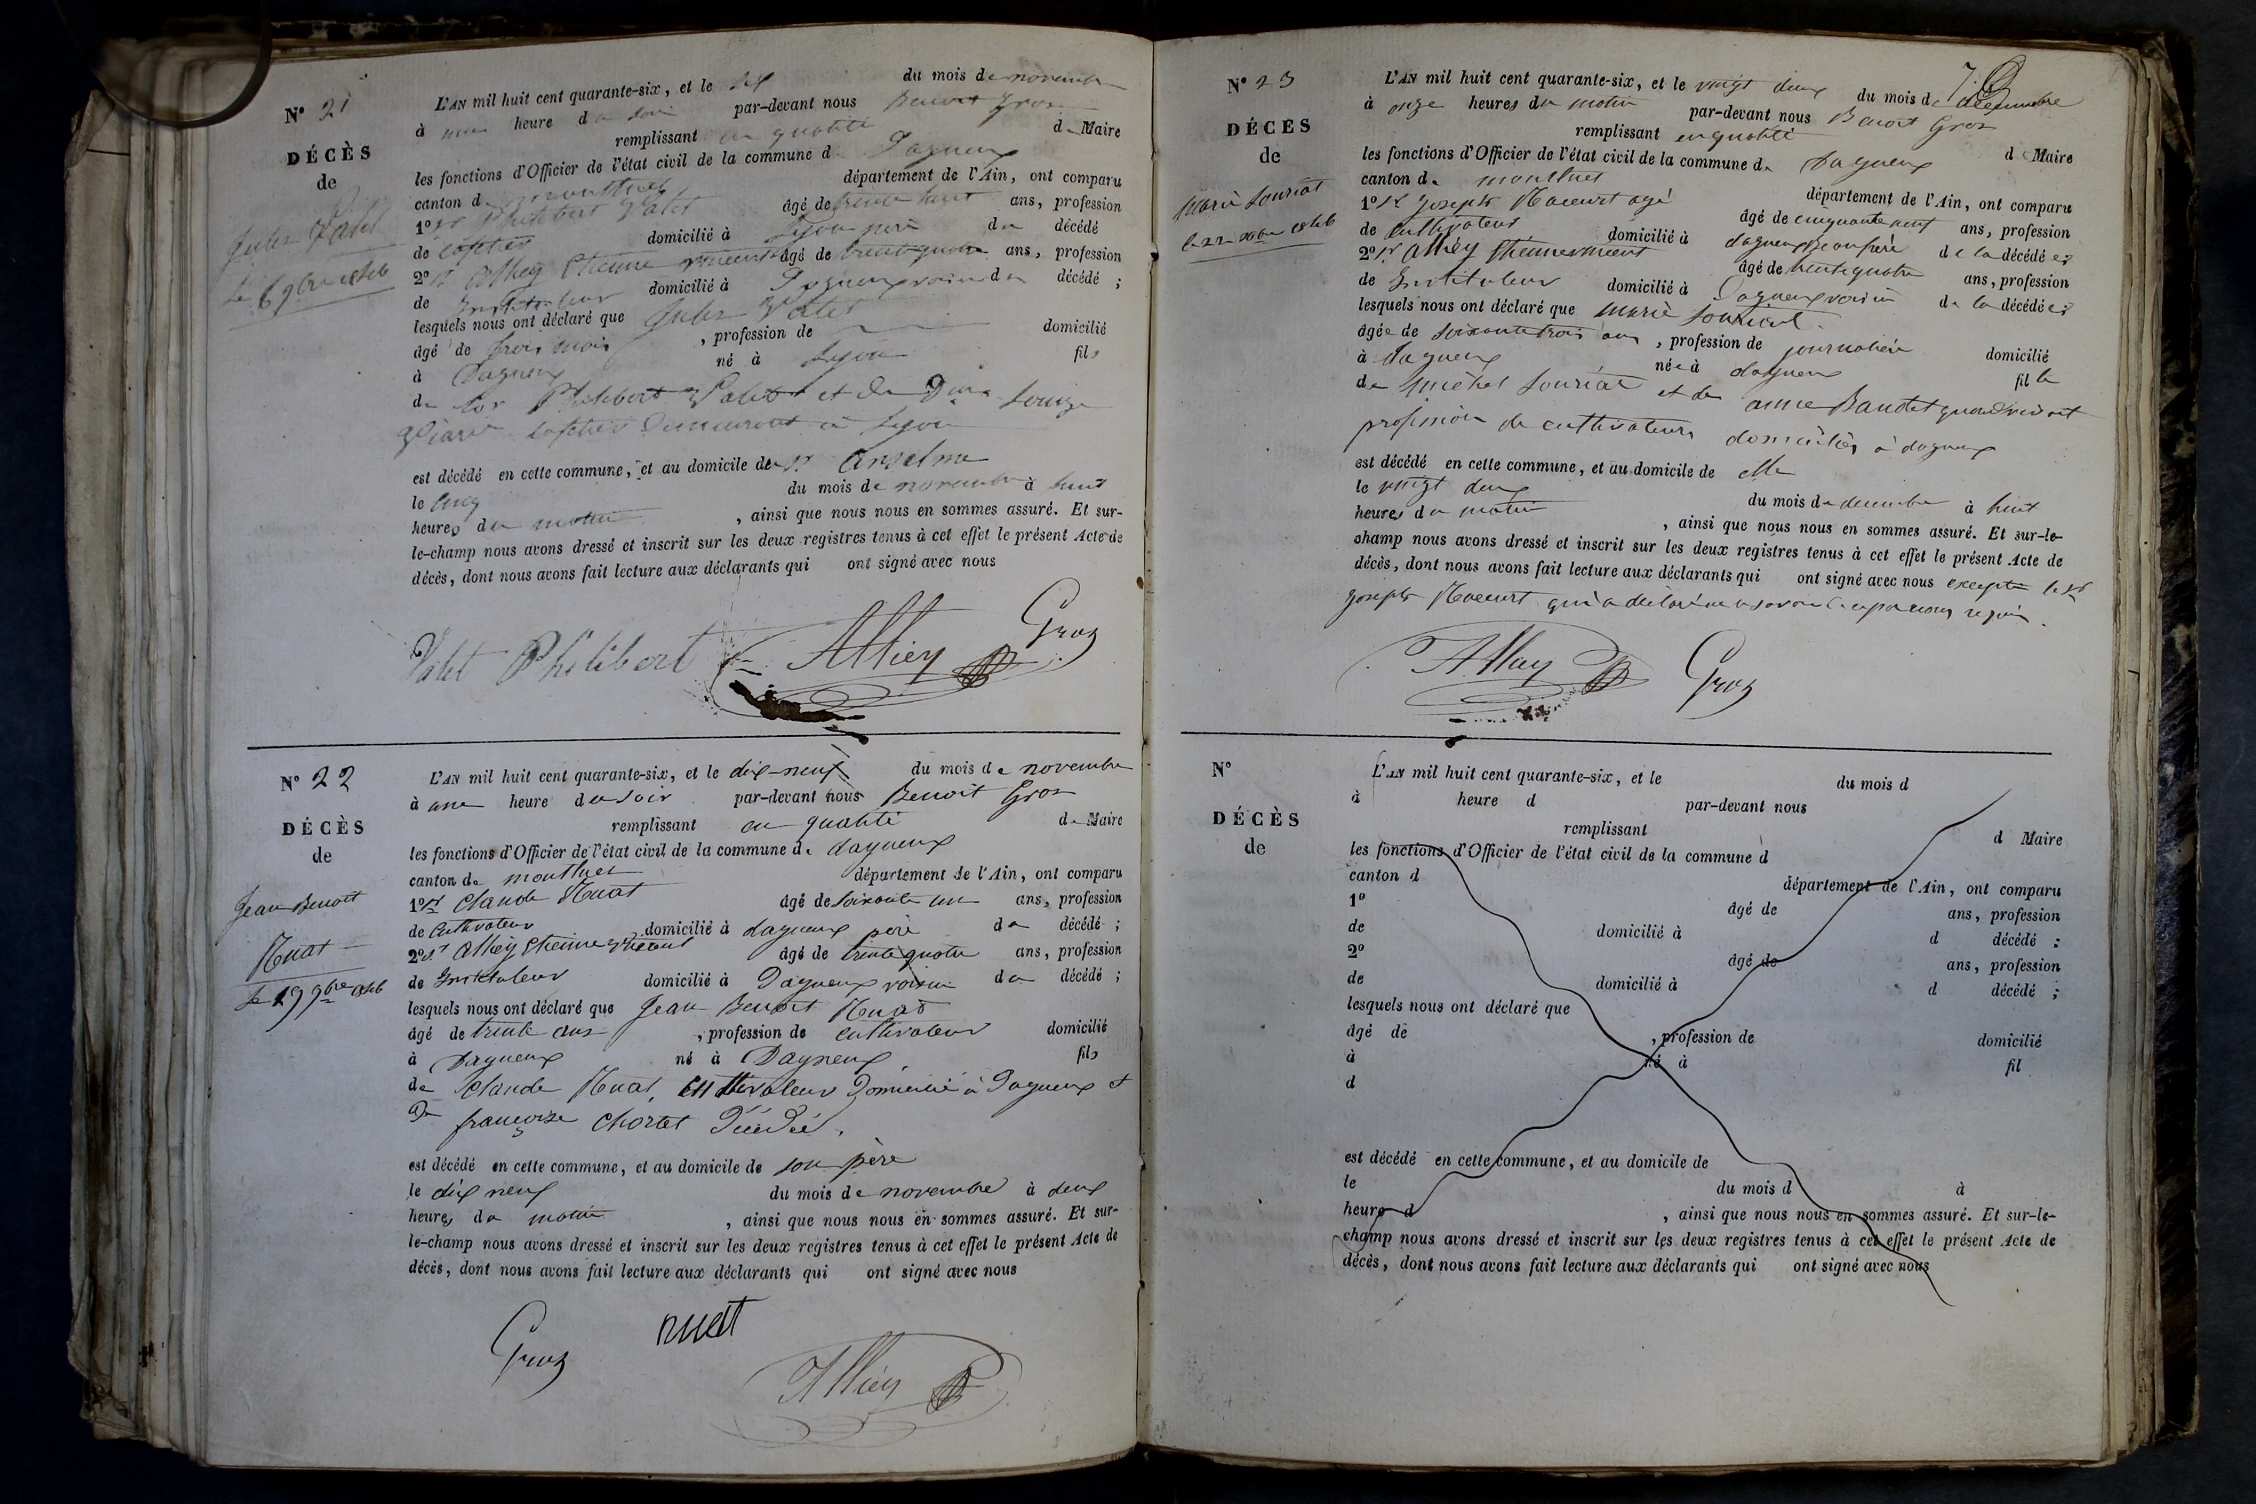 N° 21
DÉCÈS
de
Jules Valet
le 6 9bre 1846
L'AN mil huit cent quarante-six, et le six du mois de novembre
à une heure du soir par-devant nous Benoit Gros
remplissant en qualité de Maire
les fonctions d'Officier de l'état civil de la commune d Dagneux
canton de montluel département de l'Ain, ont comparu
1° sr Philibert Valet âgé de trente huit ans, profession
de domicilié à Lyon père du décédé
2° sr Alhéy Etienne vincent âgé de trente quatre ans, profession
de Instituteur domicilié à Dagneux voisin du décédé ;
lesquels nous ont déclaré que Jules Valet
âgé de trois mois , profession de domicilié
à Dagneux né à Lyon fils
de sr Philibert Valet et de Louise
demeurant à Lyon
est décédé en cette commune, et au domicile de sr Anselme
le cinq du mois de novembre à huit
heures du matin , ainsi que nous nous en sommes assuré. Et sur-
le-champ nous avons dressé et inscrit sur les deux registres tenus à cet effet le présent Acte de
décès, dont nous avons fait lecture aux déclarants qui ont signé avec nous
Valet Philibert Alhéy Gros
N° 22
DÉCÈS
de
Jean Benoit
Nuat
le 19 9bre 1846
L'AN mil huit cent quarante-six, et le dix-neuf du mois de novembre
à une heure du soir par-devant nous Benoit Gros
remplissant en qualité de Maire
les fonctions d'Officier de l'état civil de la commune de dagneux
canton de montluel département de l'Ain, ont comparu
1° sr Claude Nuat âgé de soixante un ans, profession
de cultivateur domicilié à dagneux père du décédé ;
2° sr Alhéy Etienne vincent âgé de trente quatre ans, profession
de Instituteur domicilié à Dagneux voisin du décédé ;
lesquels nous ont déclaré que Jean Benoit Nuat
âgé de trente ans , profession de cultivateur domicilié
à Dagneux né à Dagneux fils
de Claude Nuat, cultivateur domicilié à Dagneux et
de françoise Chorat décédée.
est décédé en cette commune, et au domicile de son père
le dix neuf du mois de novembre à deux
heures du matin , ainsi que nous nous en sommes assuré. Et sur-
le-champ nous avons dressé et inscrit sur les deux registres tenus à cet effet le présent Acte de
décès, dont nous avons fait lecture aux déclarants qui ont signé avec nous
Gros nuat
Alhéy
N° 23
DÉCÈS
de
Marie Souriat
le 22 xbre 1846
L'AN mil huit cent quarante-six, et le vingt deux du mois de décembre
à onze heures du matin par-devant nous Benoit Gros
remplissant en qualité de Maire
les fonctions d'Officier de l'état civil de la commune de Dagneux
canton de montluel département de l'Ain, ont comparu
1° sr Joseph âgé âgé de cinquante neuf ans, profession
de cultivateur domicilié à dagneux Beaufrère de la décédée
2° sr Alhéy Etienne vincent âgé de trente quatre ans, profession
de Instituteur domicilié à Dagneux voisin de la décédée
lesquels nous ont déclaré que marie Souriat
âgée de soixante trois ans , profession de journalière domicilié
à dagneux née à dagneux fille
de michel Souriat et de anne Baudet quand vivait
profession de cultivateurs domiciliés à dagneux
est décédé en cette commune, et au domicile de elle
le vingt deux du mois de decembre à huit
heures du matin , ainsi que nous nous en sommes assuré. Et sur-le-
champ nous avons dressé et inscrit sur les deux registres tenus à cet effet le présent Acte de
décès, dont nous avons fait lecture aux déclarants qui ont signé avec nous excepté le sr
joseph qui a déclaré ne le savoir de ce par nous requis.
Alhéy Gros
N°
DÉCÈS
de
L'AN mil huit cent quarante-six, et le du mois d
à heure d par-devant nous
remplissant d Maire
les fonctions d'Officier de l'état civil de la commune d
canton d département de l'Ain, ont comparu
1° âgé de ans, profession
de domicilié à d décédé ;
2° âgé de ans, profession
de domicilié à d décédé ;
lesquels nous ont déclaré que
âgé de , profession de domicilié
à né à fil
d
est décédé en cette commune, et au domicile de
le du mois d à
heure d , ainsi que nous nous en sommes assuré. Et sur-le-
champ nous avons dressé et inscrit sur les deux registres tenus à cet effet le présent Acte de
décès, dont nous avons fait lecture aux déclarants qui ont signé avec nous